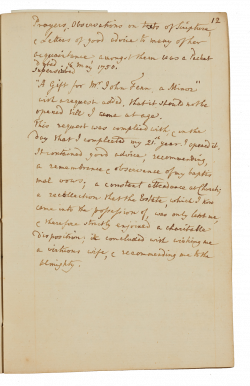 12
Prayers, Observations on texts of Scripture
& Letters of good advice to many of her
acquaintance; amongst them was a Packet
Dated May 1750.
Superscribed
"A Gift for Mr. John Fenn a Minor"
with request add, that it should not be
opened till I came at age.
This request was complied with, & on the
day that I completed my 21st year I opened it,
It contained good advice, recommending
a remembrance & observance of my baptis
mal vows; a constant attendance at Church;
a recollection that the Estate, which I now
came into the possession of, was only lent me
& therefore strictly enjoined a charitable
disposition: it concluded with wishing me
a virtuous wife, & recommending me to the
Almighty.